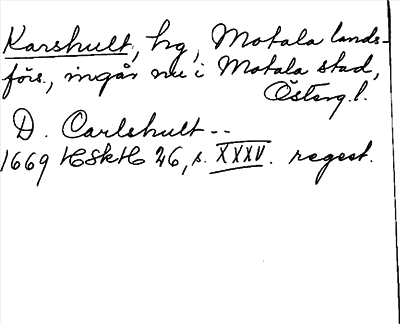 Karshult, hg, Motala lands-
förs., ingår nu i Motala stad,
Österg.l.
D. Carlshult --
1669 HSkH 26, s. XXXV. regest.